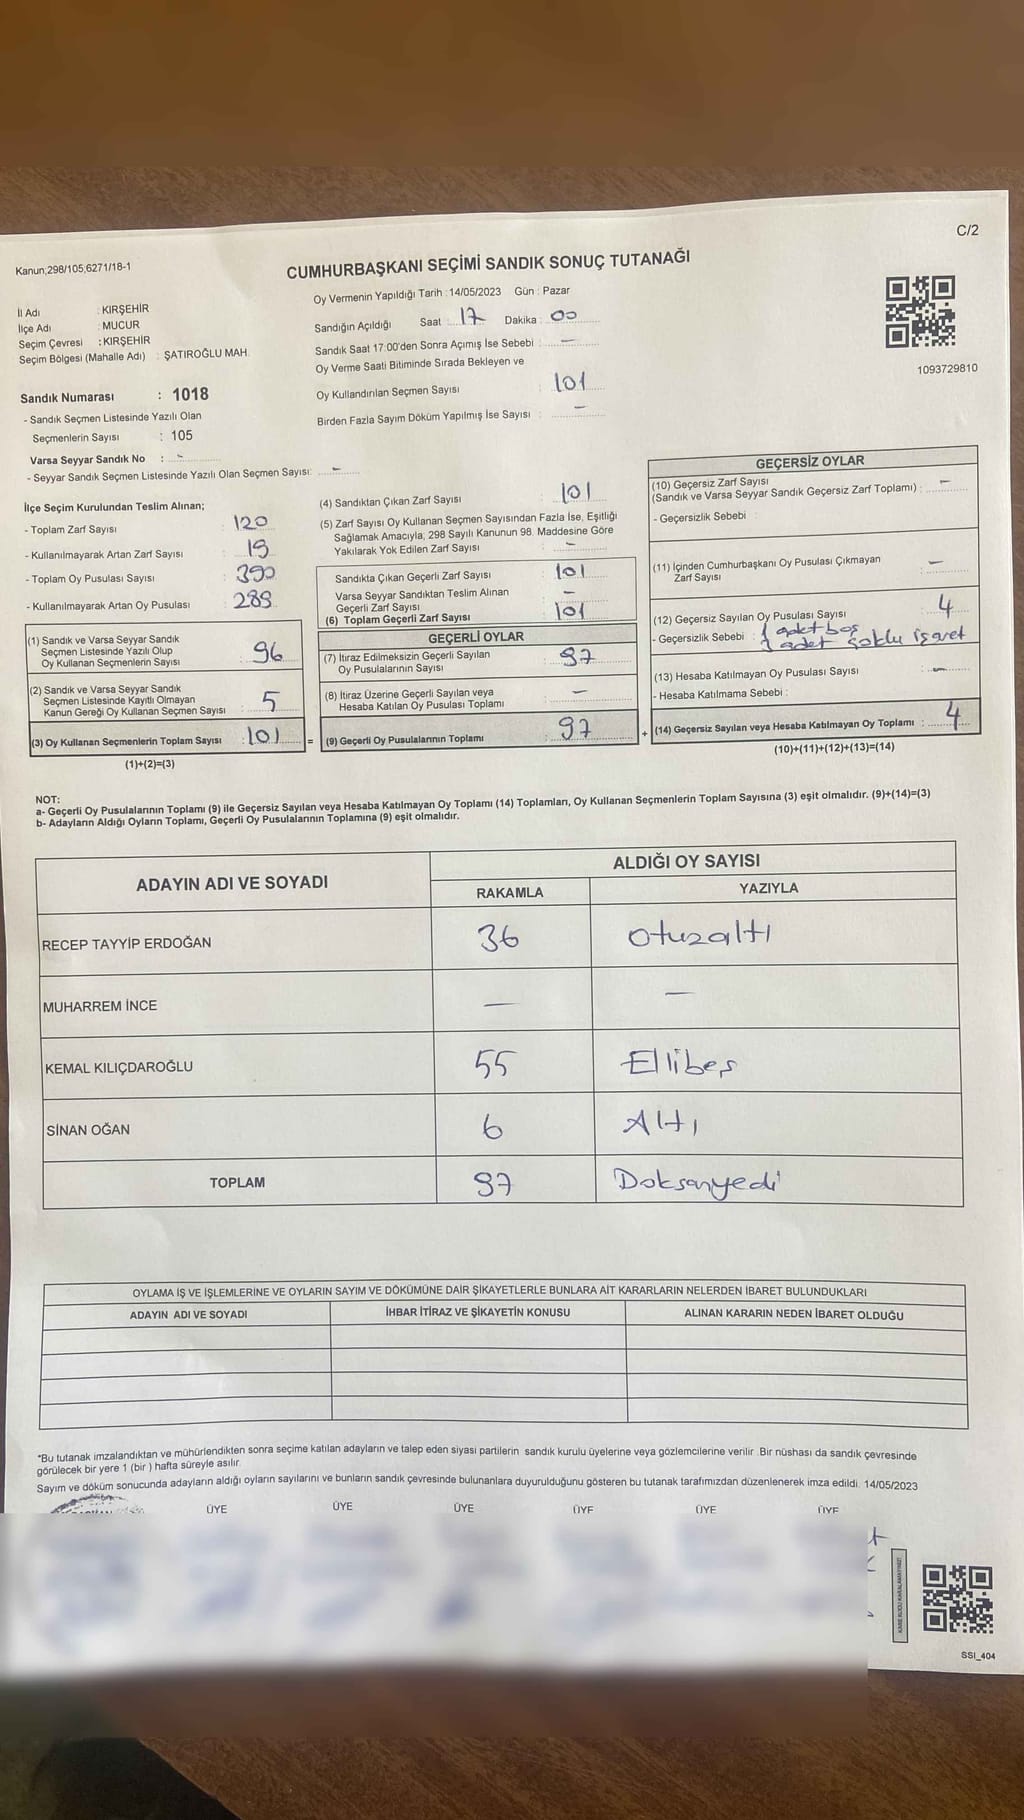 C/2
Kanun;298/105;6271/18-1
CUMHURBAŞKANI SEÇİMİ SANDIK SONUÇ TUTANAĞI
Oy Vermenin Yapıldığı Tarih :14/05/2023 Gün : Pazar
İl Adı : KIRŞEHİR
İlçe Adı : MUCUR
Seçim Çevresi : KIRŞEHİR
Seçim Bölgesi (Mahalle Adı) : ŞATIROĞLU MAH.
Sandık Numarası : 1018
- Sandık Seçmen Listesinde Yazılı Olan
Seçmenlerin Sayısı : 105
Varsa Seyyar Sandık No : -
- Seyyar Sandık Seçmen Listesinde Yazılı Olan Seçmen Sayısı: -
Sandığın Açıldığı Saat : 17 Dakika : 00
Sandık Saat 17:00'den Sonra Açımış İse Sebebi : -
Oy Verme Saati Bitiminde Sırada Bekleyen ve
Oy Kullandırılan Seçmen Sayısı : 101
Birden Fazla Sayım Döküm Yapılmış İse Sayısı : -
1093729810
İlçe Seçim Kurulundan Teslim Alınan;
- Toplam Zarf Sayısı : 120
- Kullanılmayarak Artan Zarf Sayısı : 19
- Toplam Oy Pusulası Sayısı : 390
- Kullanılmayarak Artan Oy Pusulası : 289
(1) Sandık ve Varsa Seyyar Sandık
Seçmen Listesinde Yazılı Olup
Oy Kullanan Seçmenlerin Sayısı : 96
(2) Sandık ve Varsa Seyyar Sandık
Seçmen Listesinde Kayıtlı Olmayan
Kanun Gereği Oy Kullanan Seçmen Sayısı : 5
(3) Oy Kullanan Seçmenlerin Toplam Sayısı : 101
(1)+(2)=(3)
=
(4) Sandıktan Çıkan Zarf Sayısı : 101
(5) Zarf Sayısı Oy Kullanan Seçmen Sayısından Fazla İse, Eşitliği
Sağlamak Amacıyla, 298 Sayılı Kanunun 98. Maddesine Göre
Yakılarak Yok Edilen Zarf Sayısı : -
Sandıkta Çıkan Geçerli Zarf Sayısı : 101
Varsa Seyyar Sandıktan Teslim Alınan
Geçerli Zarf Sayısı : -
(6) Toplam Geçerli Zarf Sayısı : 101
GEÇERLİ OYLAR
(7) İtiraz Edilmeksizin Geçerli Sayılan
Oy Pusulalarının Sayısı : 97
(8) İtiraz Üzerine Geçerli Sayılan veya
Hesaba Katılan Oy Pusulası Toplamı : -
(9) Geçerli Oy Pusulalarının Toplamı : 97
+
GEÇERSİZ OYLAR
(10) Geçersiz Zarf Sayısı
(Sandık ve Varsa Seyyar Sandık Geçersiz Zarf Toplamı) : -
- Geçersizlik Sebebi :
(11) İçinden Cumhurbaşkanı Oy Pusulası Çıkmayan
Zarf Sayısı : -
(12) Geçersiz Sayılan Oy Pusulası Sayısı : 4
- Geçersizlik Sebebi : 1 adet boş
adet çoklu işaret
(13) Hesaba Katılmayan Oy Pusulası Sayısı : -
- Hesaba Katılmama Sebebi :
(14) Geçersiz Sayılan veya Hesaba Katılmayan Oy Toplamı : 4
(10)+(11)+(12)+(13)=(14)
NOT:
a- Geçerli Oy Pusulalarının Toplamı (9) ile Geçersiz Sayılan veya Hesaba Katılmayan Oy Toplamı (14) Toplamları, Oy Kullanan Seçmenlerin Toplam Sayısına (3) eşit olmalıdır. (9)+(14)=(3)
b- Adayların Aldığı Oyların Toplamı, Geçerli Oy Pusulalarının Toplamına (9) eşit olmalıdır.
ADAYIN ADI VE SOYADI
ALDIĞI OY SAYISI
RAKAMLA YAZIYLA
RECEP TAYYİP ERDOĞAN 36 Otuzaltı
MUHARREM İNCE - -
KEMAL KILIÇDAROĞLU 55 Ellibeş
SİNAN OĞAN 6 Altı
TOPLAM 97 Doksanyedi
OYLAMA İŞ VE İŞLEMLERİNE VE OYLARIN SAYIM VE DÖKÜMÜNE DAİR ŞİKAYETLERLE BUNLARA AİT KARARLARIN NELERDEN İBARET BULUNDUKLARI
ADAYIN ADI VE SOYADI İHBAR İTİRAZ VE ŞİKAYETİN KONUSU ALINAN KARARIN NEDEN İBARET OLDUĞU
*Bu tutanak imzalandıktan ve mühürlendikten sonra seçime katılan adayların ve talep eden siyasi partilerin sandık kurulu üyelerine veya gözlemcilerine verilir. Bir nüshası da sandık çevresinde
görülecek bir yere 1 (bir ) hafta süreyle asılır.
Sayım ve döküm sonucunda adayların aldığı oyların sayılarını ve bunların sandık çevresinde bulunanlara duyurulduğunu gösteren bu tutanak tarafımızdan düzenlenerek imza edildi. 14/05/2023
ÜYE ÜYE ÜYE ÜYE ÜYE ÜYE
SSI_404